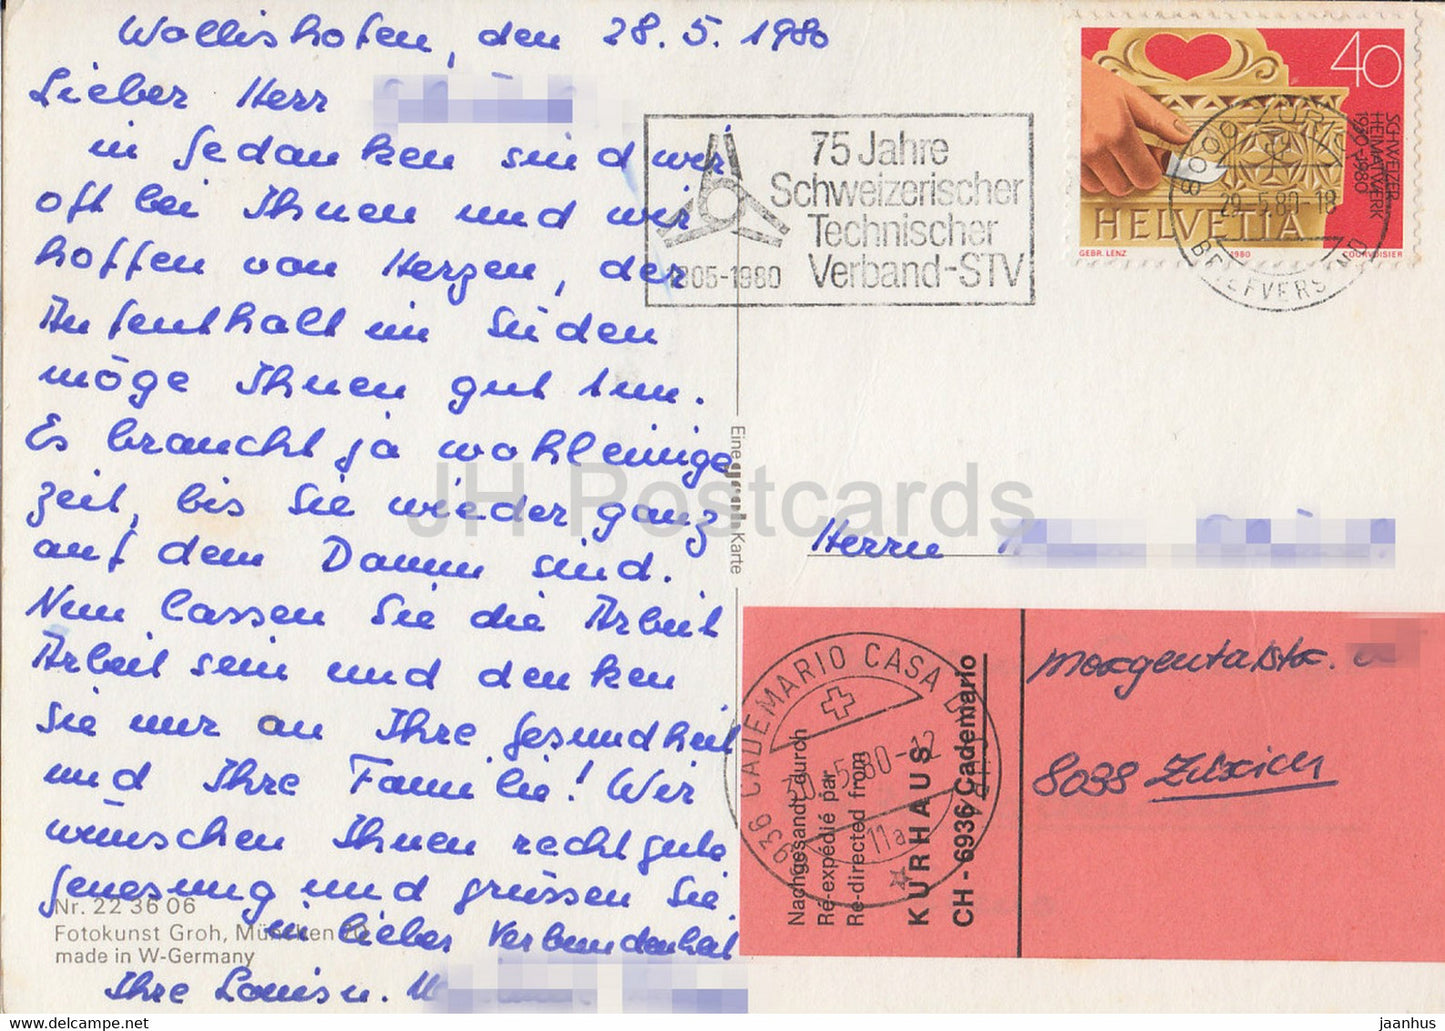 Wollishofen, den 28.5.1980
Lieber Herr
in Gedanken sind wir
oft bei Ihnen und wir
hoffen von Herzen, der
Aufenthalt im Süden
möge Ihnen gut tun.
Es braucht ja wohl einige
Zeit, bis Sie wieder ganz
auf dem Damm sind.
Nun lassen Sie die Arbeit
Arbeit sein und denken
Sie nur an Ihre Gesundheit
und Ihre Familie! Wir
wünschen Ihnen recht gute
Genesung und grüssen Sie
in lieber Verbundenheit
Ihre Louis u.
Nr. 22 36 06
Fotokunst Groh, München 70
made in W-Germany
Eine Groh Karte
75 Jahre
Schweizerischer
Technischer
Verband-STV
1905-1980
40
SCHWEIZER
HEIMATWERK
1930-1980
HELVETIA
GEBR. LENZ 1980 COURVOISIER
8000 ZÜRICH
29.5.80-18
BRIEFVERSAND
JH Postcards
Herrn
Morgentalstr.
8038 Zürich
6936 CADEMARIO CASA DI
5.80-12
11a
Nachgesandt durch
Ré-expédié par
Re-directed from
KURHAUS
CH - 6936 Cademario
www.hippostcard.com/store/jh-postcards
jaanhu.com